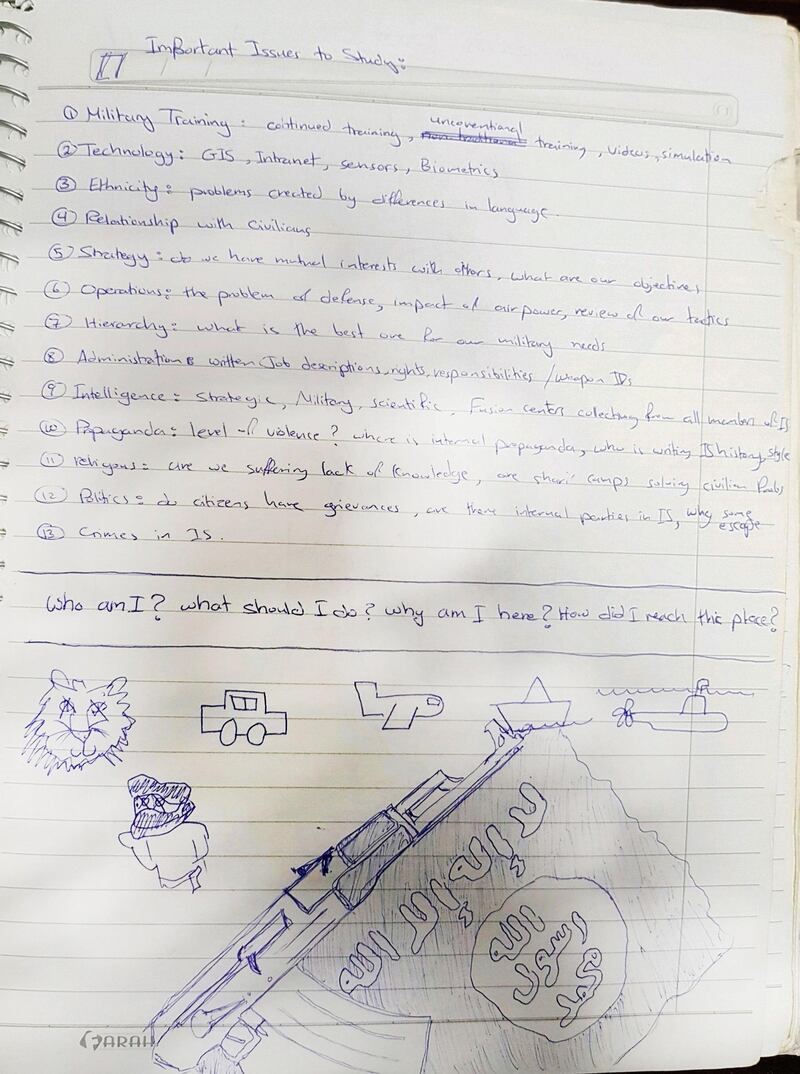 Important Issues to Study:
① Military Training: continued training, unconventional training, videos, simulation
② Technology: GIS, Intranet, sensors, Biometrics
③ Ethnicity: problems created by differences in language.
④ Relationship with Civilians
⑤ Strategy: do we have mutual interests with others, what are our objectives
⑥ Operations: the problem of defense, impact of airpower, review of our tactics
⑦ Hierarchy: what is the best one for our military needs
⑧ Administration: written Job descriptions, rights, responsibilities / weapon IDs
⑨ Intelligence: Strategic, Military, scientific, Fusion centers collecting from all members of IS
⑩ Propaganda: level of violence? where is internal propaganda, who is writing IS history, style
⑪ religious: are we suffering lack of knowledge, are shari' camps solving civilian Probs
⑫ Politics: do citizens have grievances, are there internal parties in IS, why some escape
⑬ Crimes in IS.
Who am I? what should I do? why am I here? How did I reach this place?
لا إله إلا الله
الله
رسول
محمد
FARAH